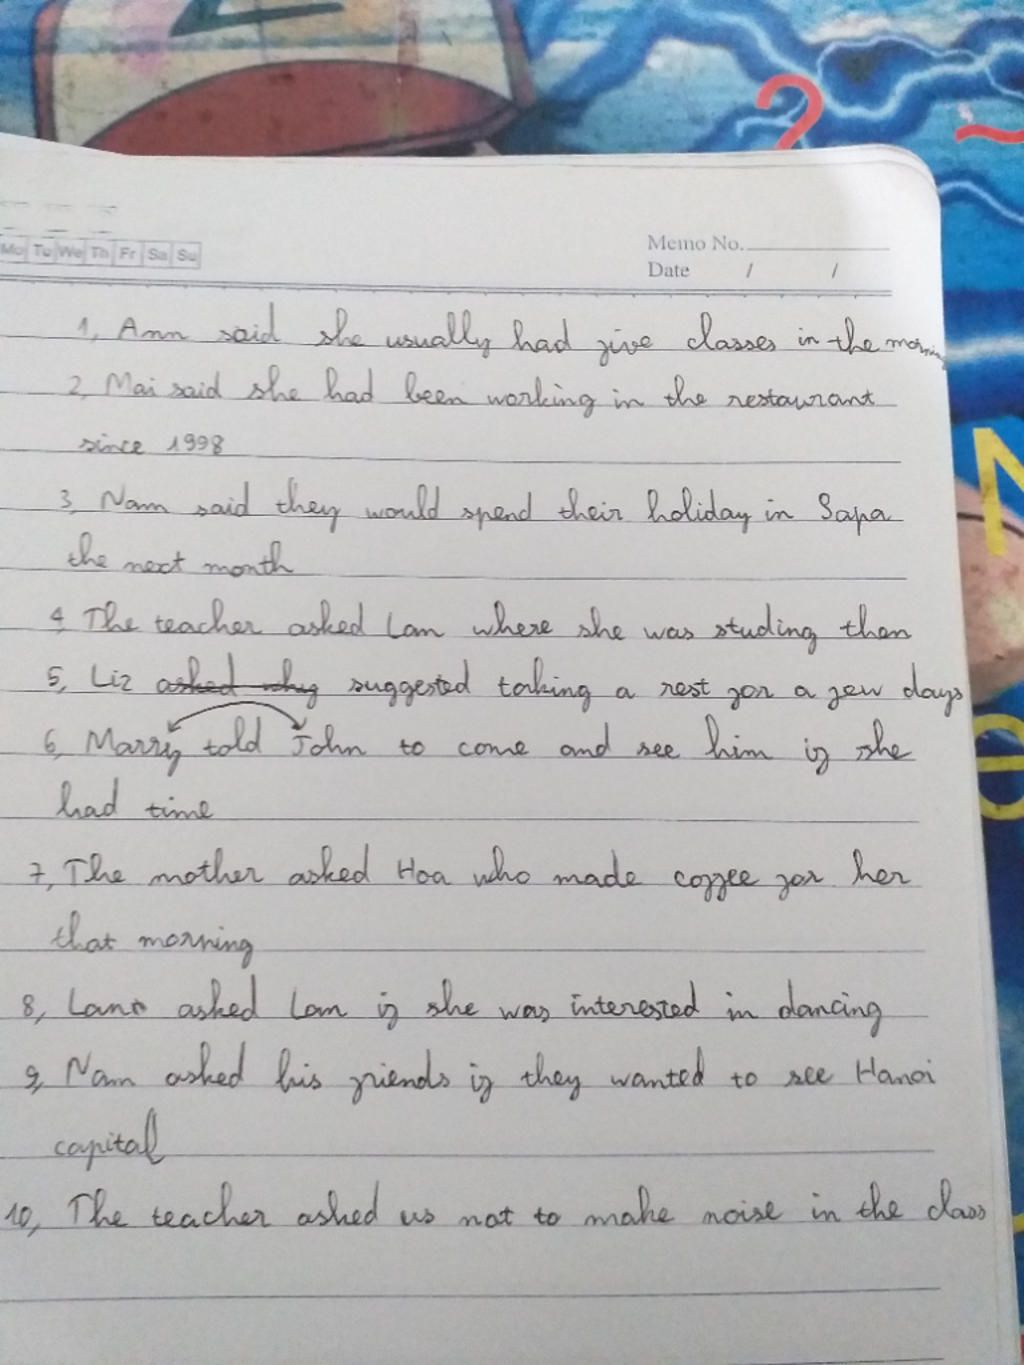 2
N
e
Mo Tu We Th Fr Sa Su
Memo No.
Date / /
1, Ann said she usually had five classes in the morning
2, Mai said she had been working in the restaurant
since 1998
3, Nam said they would spend their holiday in Sapa
the next month
4, The teacher asked Lan where she was studing then
5, Liz asked why suggested taking a rest for a few days
6, Marry told John to come and see him if she
had time
7, The mother asked Hoa who made coffee for her
that morning
8, Lan asked Lam if she was interested in dancing
9, Nam asked his friends if they wanted to see Hanoi
capital
10, The teacher asked us not to make noise in the class